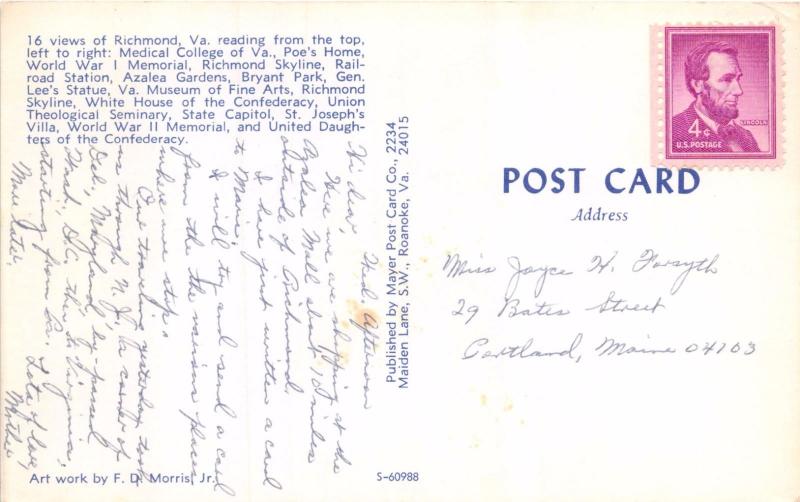 16 views of Richmond, Va. reading from the top,
left to right: Medical College of Va., Poe's Home,
World War I Memorial, Richmond Skyline, Rail-
road Station, Azalea Gardens, Bryant Park, Gen.
Lee's Statue, Va. Museum of Fine Arts, Richmond
Skyline, White House of the Confederacy, Union
Theological Seminary, State Capitol, St. Joseph's
Villa, World War II Memorial, and United Daugh-
ters of the Confederacy.
Wed. Afternoon
Hi dear,
Here we are shopping at the
Azalea Mall about miles
outside of Richmond.
I have just written a card
to Marie.
I will try and send a card
from the the various places
where we stop.
Our traveling yesterday took
us through N.J., a corner of
Del., Maryland, by passed
Wash., D.C., then to Virginia,
starting from Pa.
More later.
Lots of love,
Mother
Art work by F. D. Morris, Jr.
S-60988
Published by Mayer Post Card Co., 2234
Maiden Lane, S.W., Roanoke, Va. 24015
4¢
LINCOLN
U.S. POSTAGE
POST CARD
Address
Miss Joyce H. Forsyth
29 Bates Street
Portland, Maine 04103